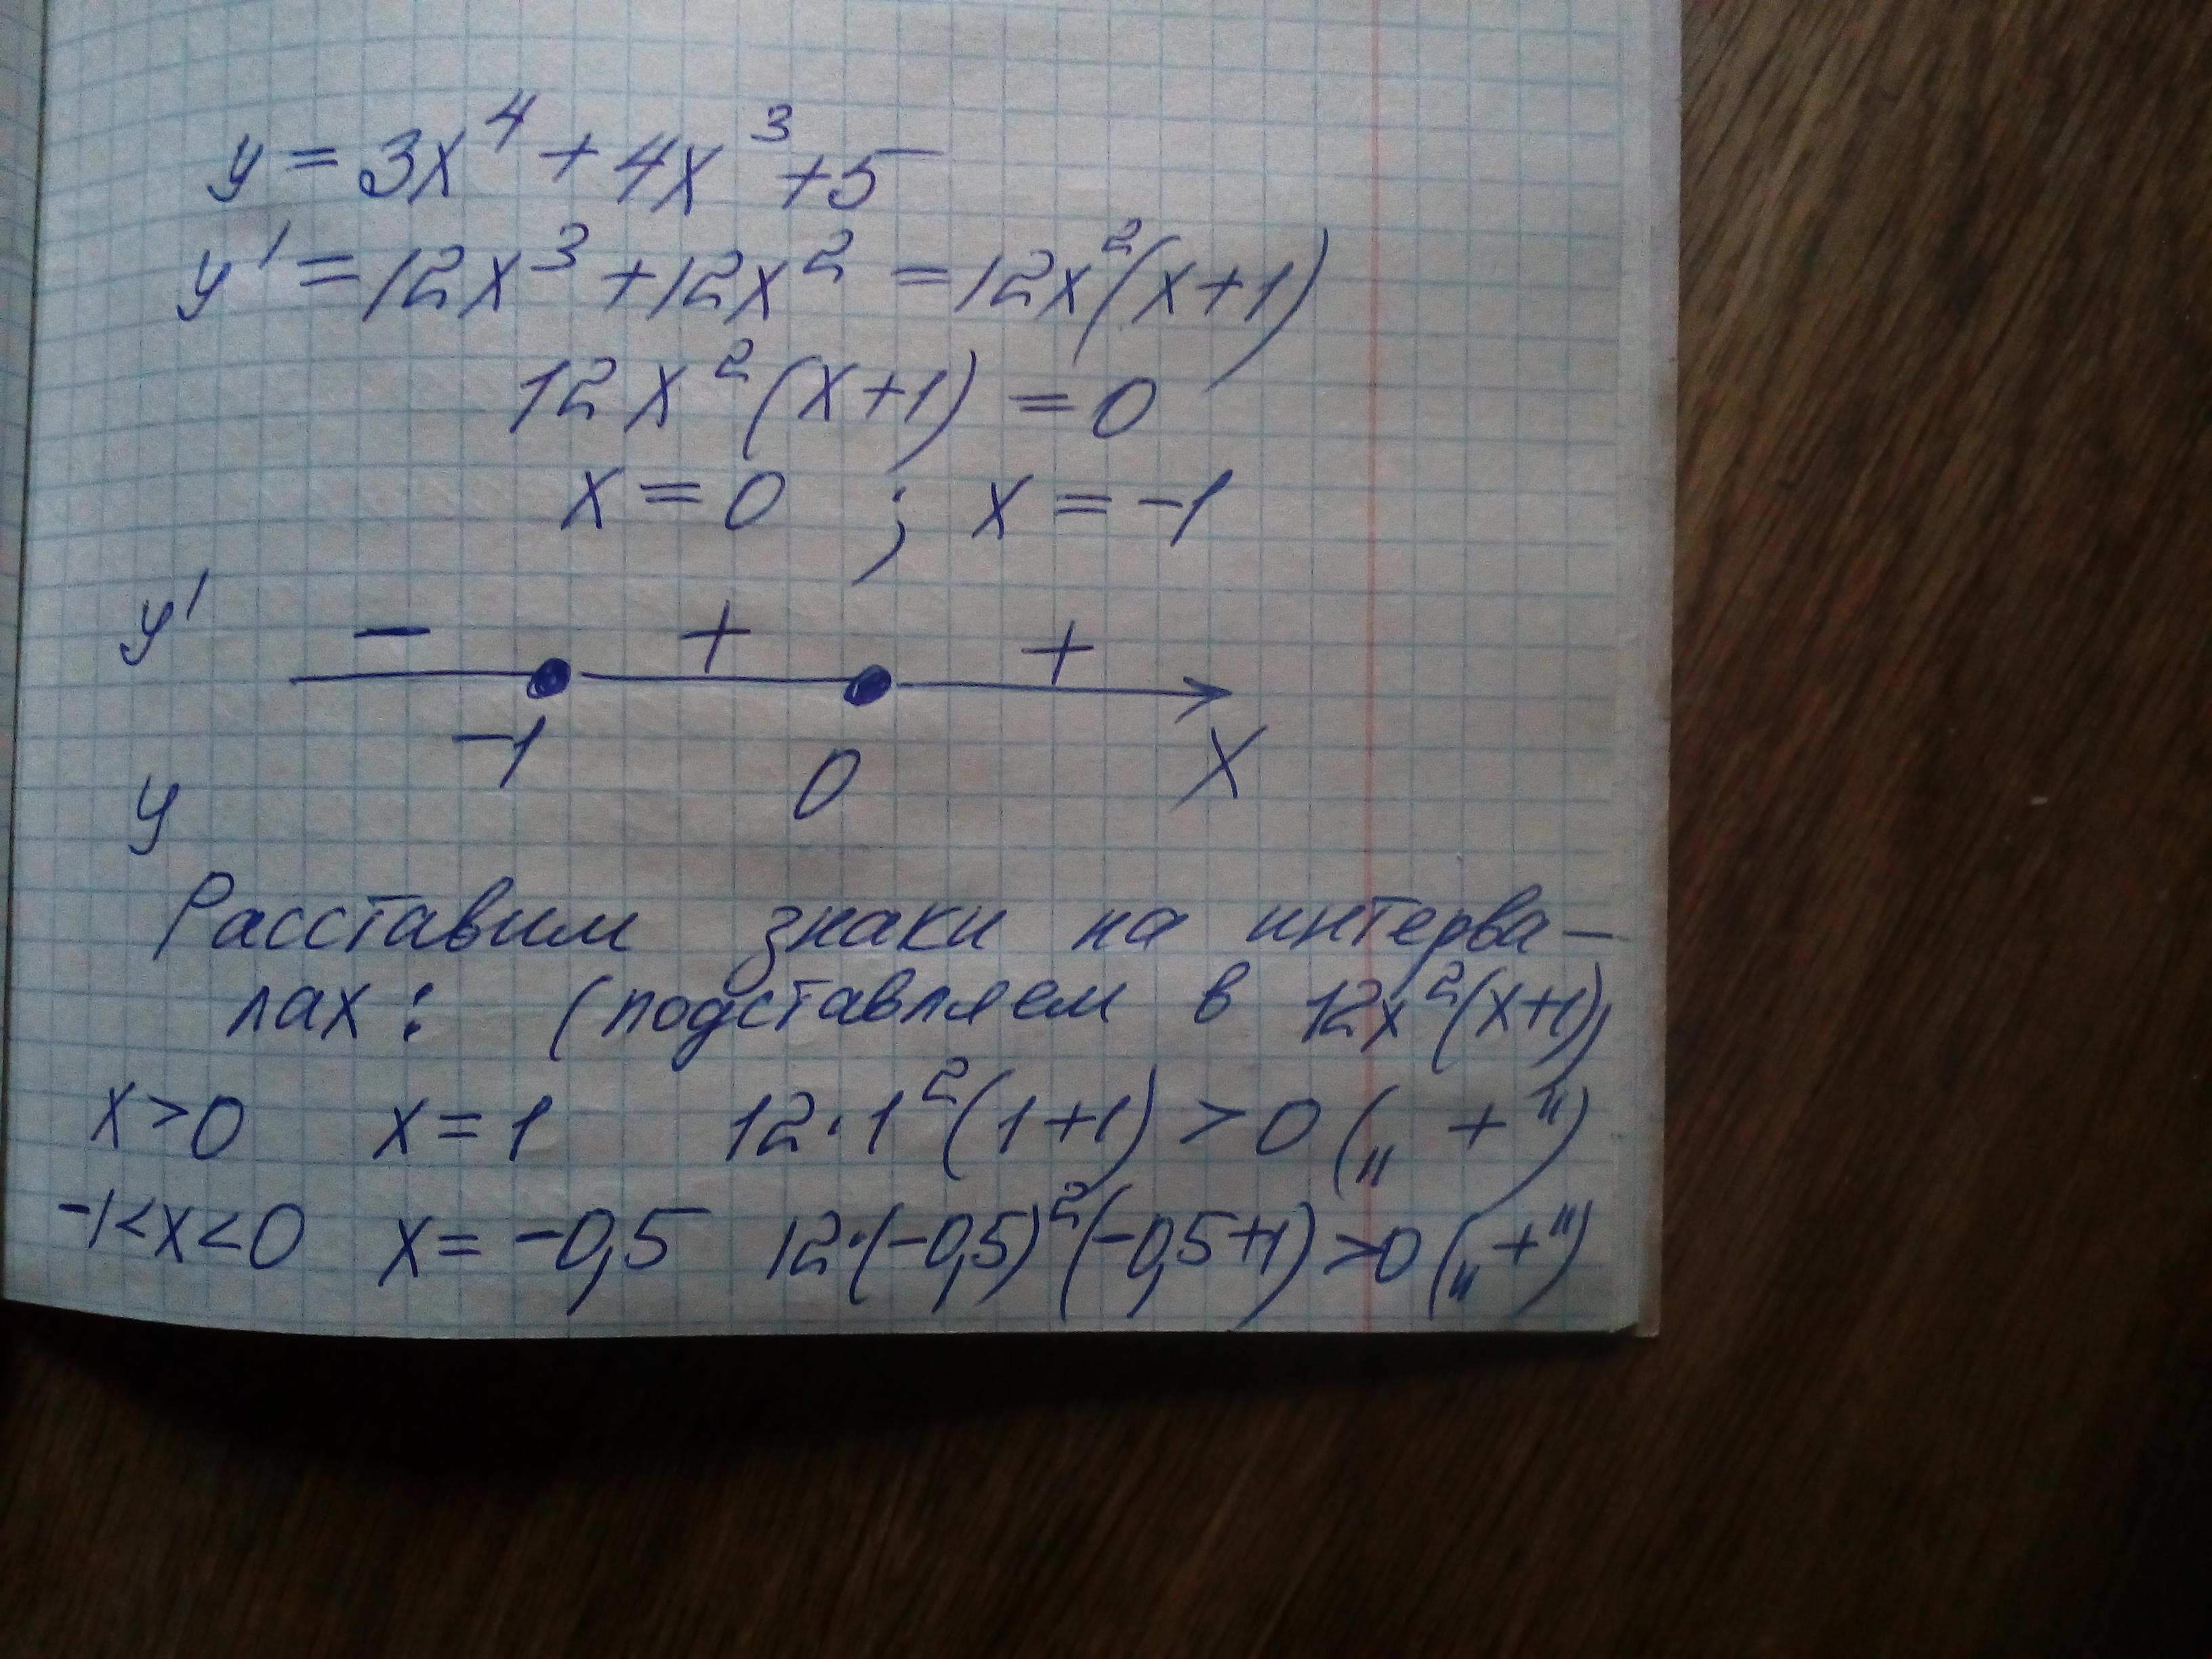 y = 3x⁴ + 4x³ + 5
y' = 12x³ + 12x² = 12x²(x+1)
12x²(x+1) = 0
x = 0 ; x = -1
y' − + +
-1 0 x
y
Расставим знаки на интерва-
лах: (подставляем в 12x²(x+1)
x>0 x = 1 12·1²(1+1) > 0 („+")
-1<x<0 x = -0,5 12·(-0,5)²(-0,5+1) >0 („+")